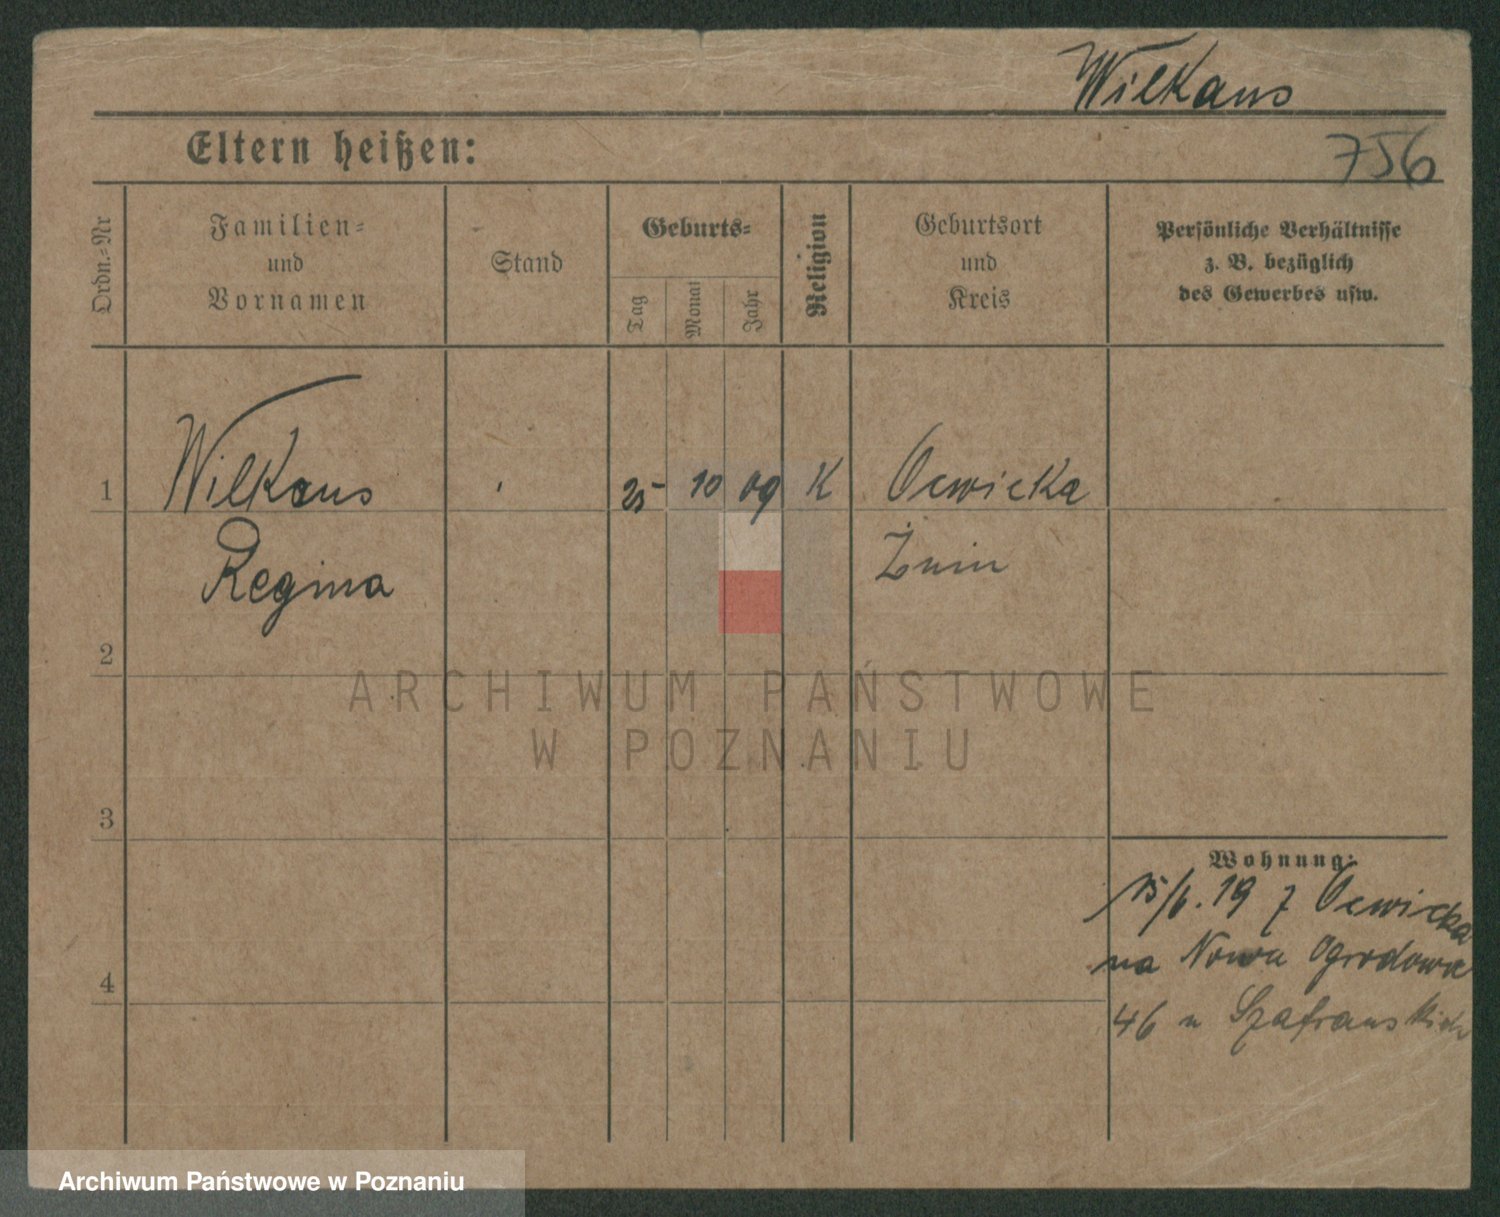 Wilkans
Eltern heißen:
756
Ordn.-Nr
Familien-
und
Vornamen
Stand
Geburts-
Tag
Monat
Jahr
Religion
Geburtsort
und
Kreis
Persönliche Verhältnisse
z. B. bezüglich
des Gewerbes usw.
1
Wilkans
25-
10
09
K
Ocwieka
Regina
Żnin
2
ARCHIWUM PAŃSTWOWE
W POZNANIU
3
Wohnung:
15/6.19 z Ocwieka
na Nowa Ogrodowa
4
46 u Szafranskich
Archiwum Państwowe w Poznaniu